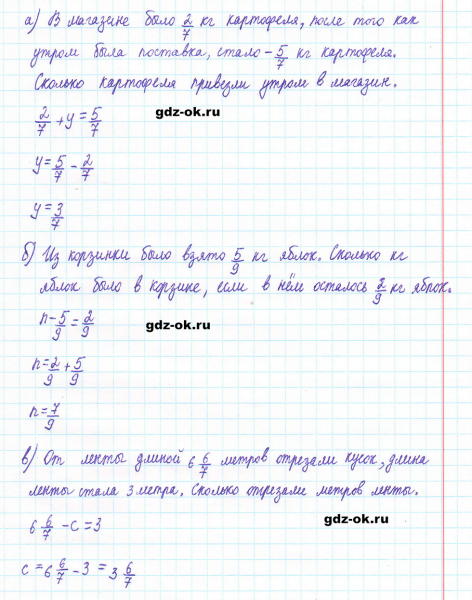 а) В магазине было 2/7 кг картофеля, после того как
утром была поставка, стало - 5/7 кг картофеля.
Сколько картофеля привезли утром в магазин.
2/7 + y = 5/7
gdz-ok.ru
y = 5/7 - 2/7
y = 3/7
б) Из корзинки было взято 5/9 кг яблок. Сколько кг
яблок было в корзине, если в нём осталось 2/9 кг яблок.
n - 5/9 = 2/9
gdz-ok.ru
n = 2/9 + 5/9
n = 7/9
в) От ленты длиной 6 6/7 метров отрезали кусок, длина
ленты стала 3 метра. Сколько отрезали метров ленты.
6 6/7 - c = 3
gdz-ok.ru
c = 6 6/7 - 3 = 3 6/7